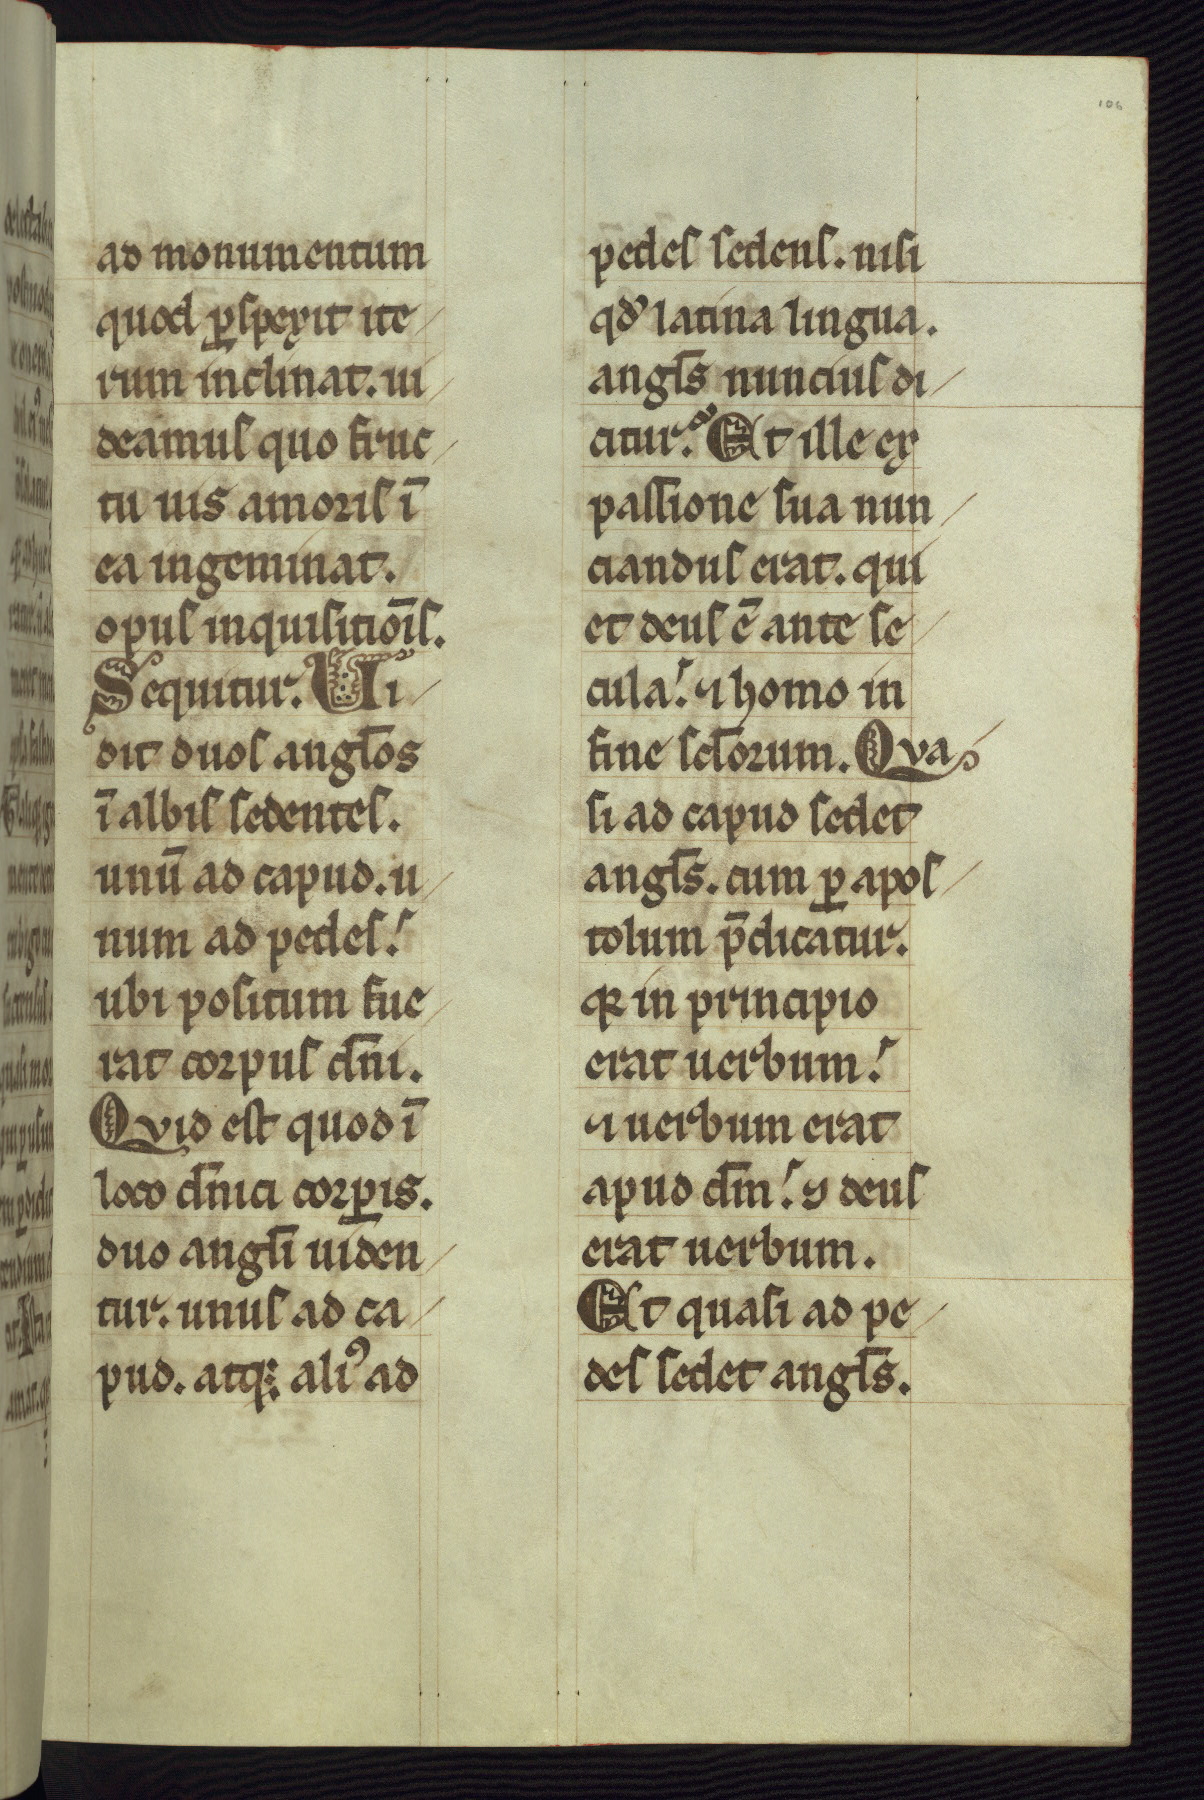 106
ad monumentum
quod p̱spexit ite
rum inclinat. ui
deamus quo fruc
tu uis amoris ī
ea ingeminat.
opus inquisitiōis.
Sequitur. Ui
dit duos angl̄os
ī albis sedentes.
unū ad capud. u
num ad pedes.
ubi positum fue
rat corpus dn̄i.
Qvid est quod ī
loco dn̄ici corꝑis.
duo angl̄i uiden
tur. unus ad ca
pud. atq; aliꝰ ad
pedes sedens. nisi
qđ latina lingua.
angl̄s nuncius di
citur. Et ille ex
passione sua nun
ciandus erat. qui
et deus ē ante se
cula. ⁊ homo in
fine scl̄orum. Qva
si ad capud sedet
angl̄s. cum ꝑ apos
tolum p̄dicatur.
qꝛ in principio
erat uerbum.
⁊ uerbum erat
apud dm̄. ⁊ deus
erat uerbum.
Et quasi ad pe
des sedet angl̄s.